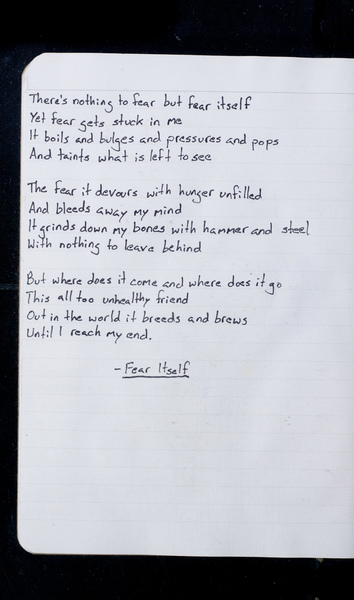 There's nothing to fear but fear itself
Yet fear gets stuck in me
It boils and bulges and pressures and pops
And taints what is left to see
The fear it devours with hunger unfilled
And bleeds away my mind
It grinds down my bones with hammer and steel
With nothing to leave behind
But where does it come and where does it go
This all too unhealthy friend
Out in the world it breeds and brews
Until I reach my end.
- Fear Itself